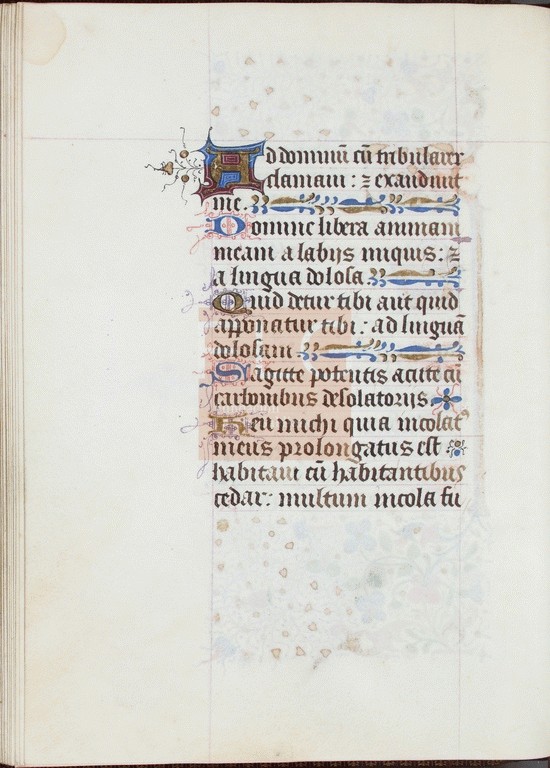 Ad dominū cū tribularer
clamaui : ꝛ exaudiuit
me.
Domine libera animam
meam a labijs iniquis : ꝛ
a lingua dolosa.
Quid detur tibi aut quid
apponatur tibi : ad linguā
dolosam.
Sagitte potentis acute cū
carbonibus desolatorijs
Heu michi quia incolatꝰ
meus prolongatus est
habitaui cū habitantibus
cedar : multum incola fu